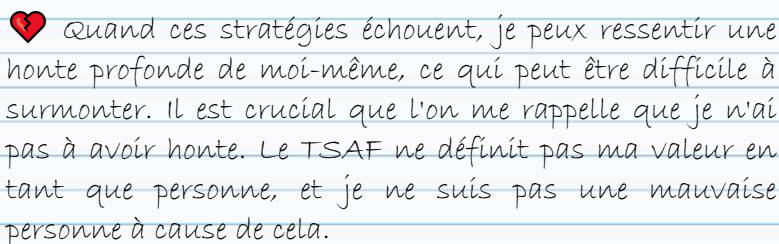 💔 Quand ces stratégies échouent, je peux ressentir une
honte profonde de moi-même, ce qui peut être difficile à
surmonter. Il est crucial que l'on me rappelle que je n'ai
pas à avoir honte. Le TSAF ne définit pas ma valeur en
tant que personne, et je ne suis pas une mauvaise
personne à cause de cela.